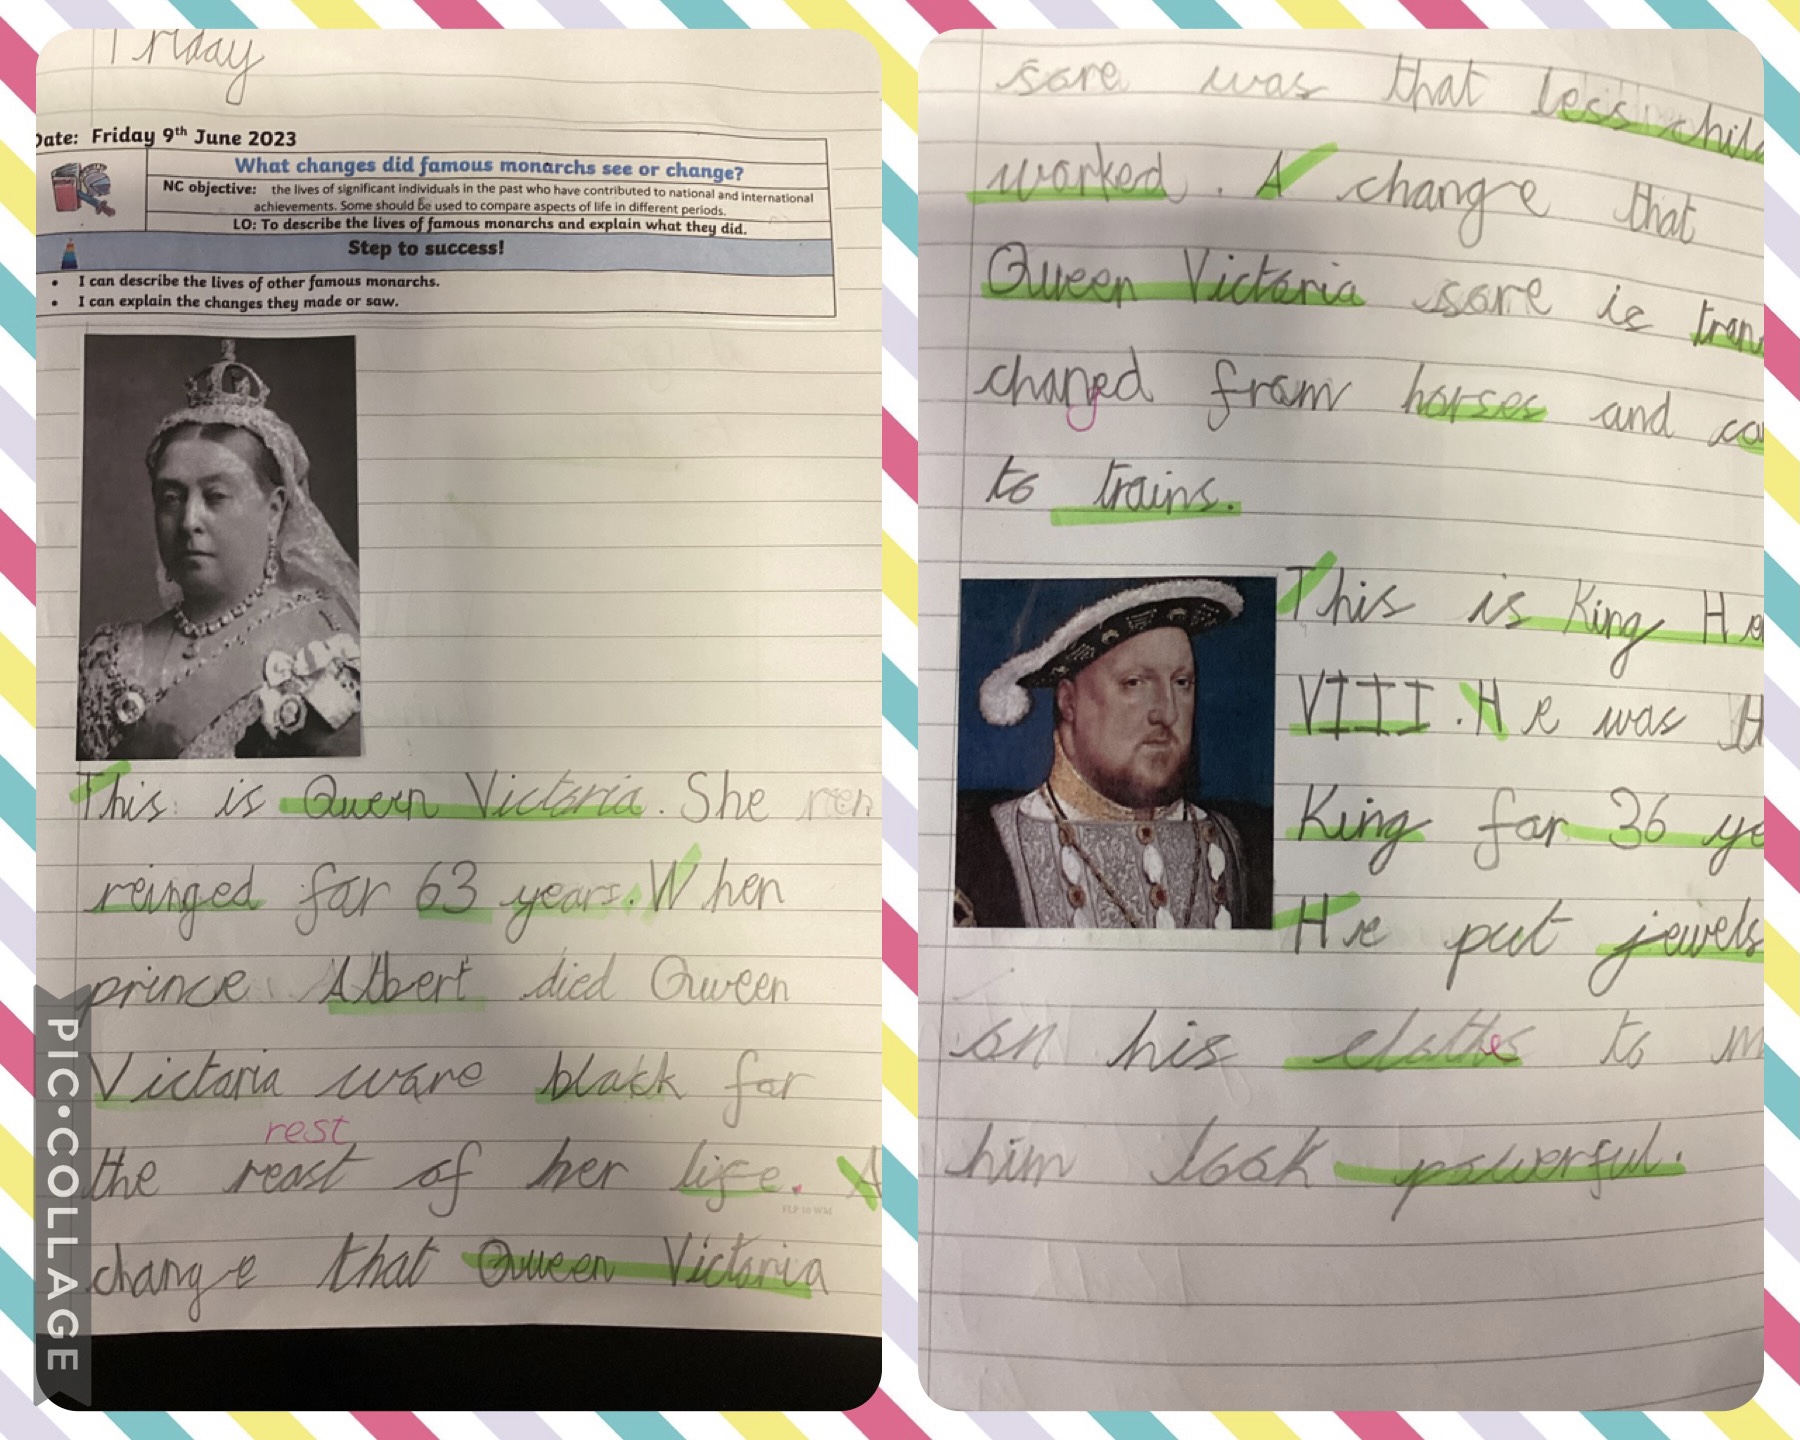 Friday
Date: Friday 9th June 2023
What changes did famous monarchs see or change?
NC objective: the lives of significant individuals in the past who have contributed to national and international
achievements. Some should be used to compare aspects of life in different periods.
LO: To describe the lives of famous monarchs and explain what they did.
Step to success!
• I can describe the lives of other famous monarchs.
• I can explain the changes they made or saw.
This is Queen Victoria. She
reinged for 63 years. When
prince Albert died Queen
Victoria ware black for
rest
the reast of her life. A
change that Queen Victoria
PIC•COLLAGE
sore was that less chil
worked. A change that
Queen Victoria sore is tran
changed from horses and ca
to trains.
This is King He
VIII. He was
King for 36 ye
He put jewels
on his clothes to m
him look powerful.